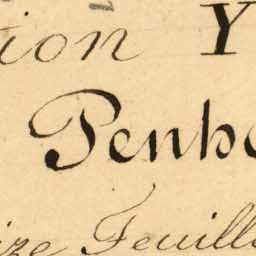 tion Y
Penho
ize Feuille